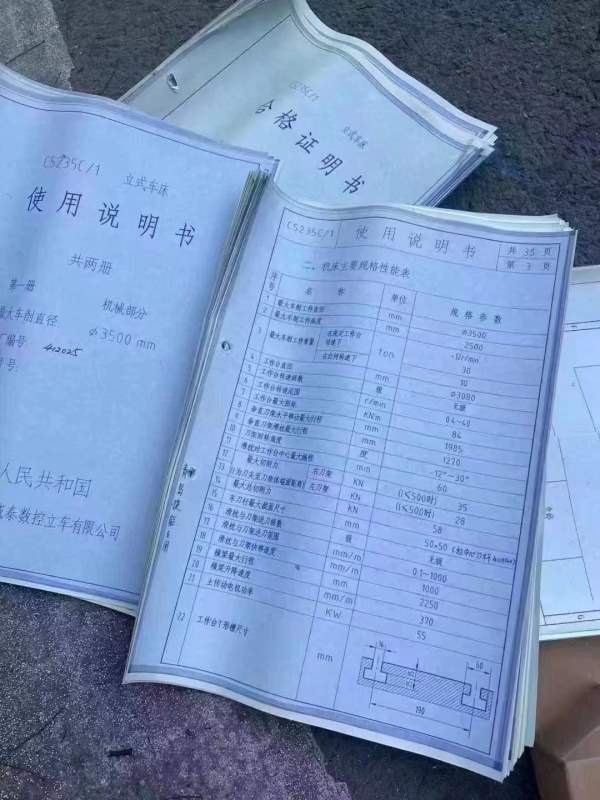 C5235C/1
立式车床
合格证明书
C5235C/1
立式车床
使用说明书
共两册
第一册
机械部分
最大车削直径
φ3500 mm
编号
412025
号:
人民共和国
泰数控立车有限公司
C5235C/1
使用说明书
共 35 页
第 3 页
二、机床主要规格性能表
序号 名称 单位 规格参数
1 最大车削工件直径 mm φ3500
2 最大车削工件高度 mm 2500
3 最大车削工件重量 ton
30
10
4 工作台直径 mm φ3080
5 工作台转速级数 级 无级
6 工作台转速范围 r/min 0.4~40
7 工作台最大扭矩 KN·m 84
8 垂直刀架水平移动最大行程 mm 1985
9 垂直刀架滑枕最大行程 mm 1270
10 刀架回转角度 度
11
12 最大切削力 右刀架 KN (l≤500时) 35
13 左刀架 KN (l≤500时) 28
14 最大总切削力 KN 58
15 车刀杆最大截面尺寸 mm 50×50
16 滑枕与刀架进刀级数 级 无级
17 滑枕与刀架进刀范围 mm/m 0.1~1000
18 滑枕与刀架快移速度 mm/m 1000
19 横梁最大行程 mm 2250
20 横梁升降速度 mm/m 370
21 主传动电机功率 KW 55
22 工作台T形槽尺寸 mm
190